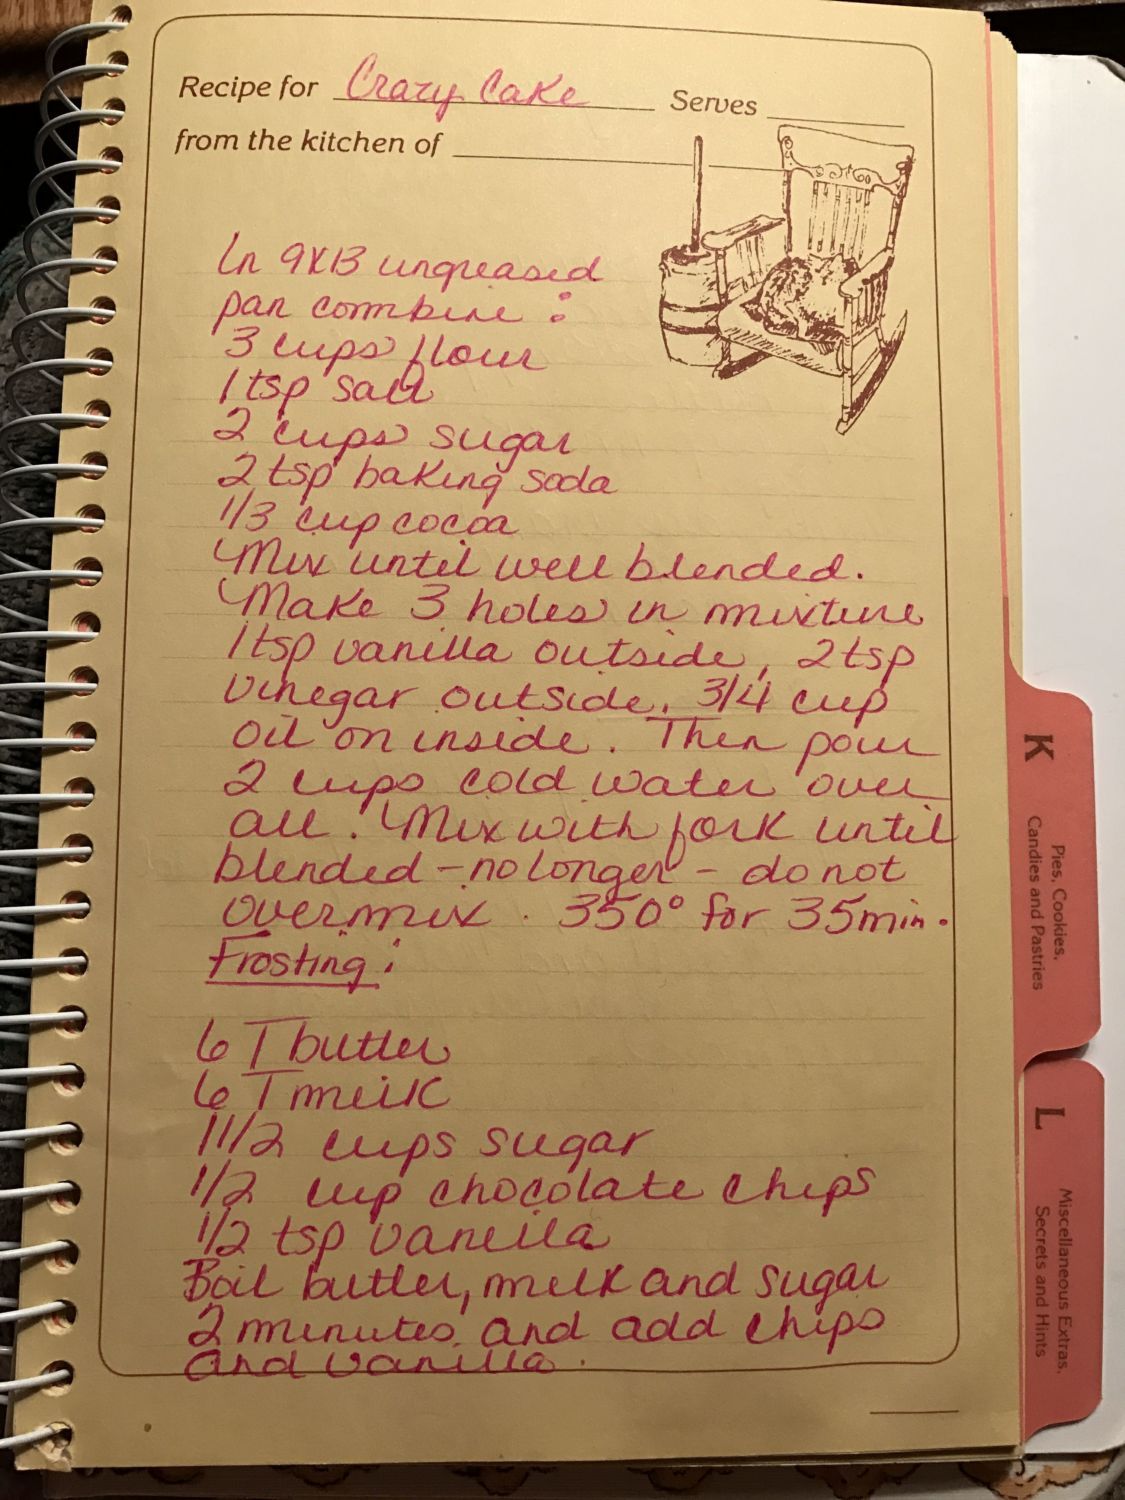 Recipe for Crazy Cake Serves
from the kitchen of
In 9X13 ungreased
pan combine :
3 cups flour
1 tsp salt
2 cups sugar
2 tsp baking soda
1/3 cup cocoa
Mix until well blended.
Make 3 holes in mixture
1 tsp vanilla outside, 2 tsp
vinegar outside, 3/4 cup
oil on inside. Then pour
2 cups cold water over
all. Mix with fork until
blended - no longer - do not
overmix. 350° for 35 min.
Frosting:
6 T butter
6 T milk
1 1/2 cups sugar
1/2 cup chocolate chips
1/2 tsp vanilla
Boil butter, milk and sugar
2 minutes and add chips
and vanilla.
K
Pies, Cookies,
Candies and Pastries
L
Miscellaneous Extras,
Secrets and Hints